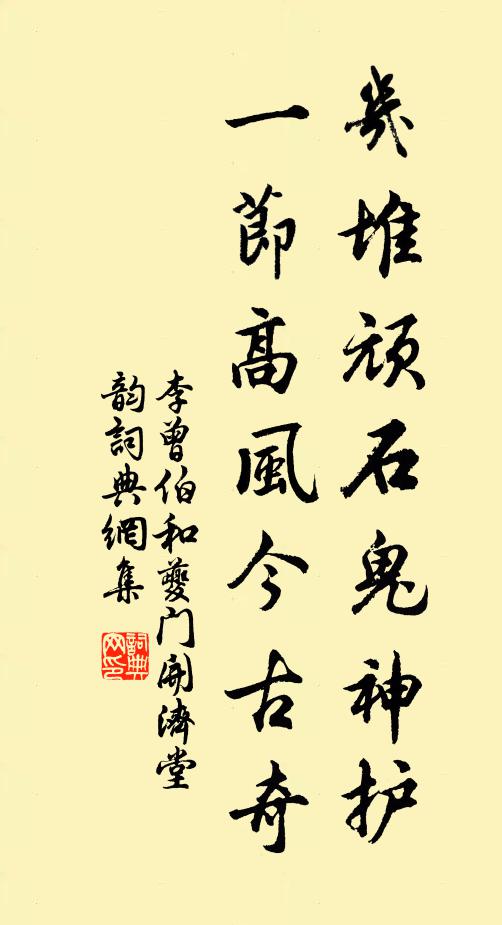 几堆顽石鬼神护
一節高風今古奇
李曾伯和夔门開濟堂
韵詞典網集
詞典
网印